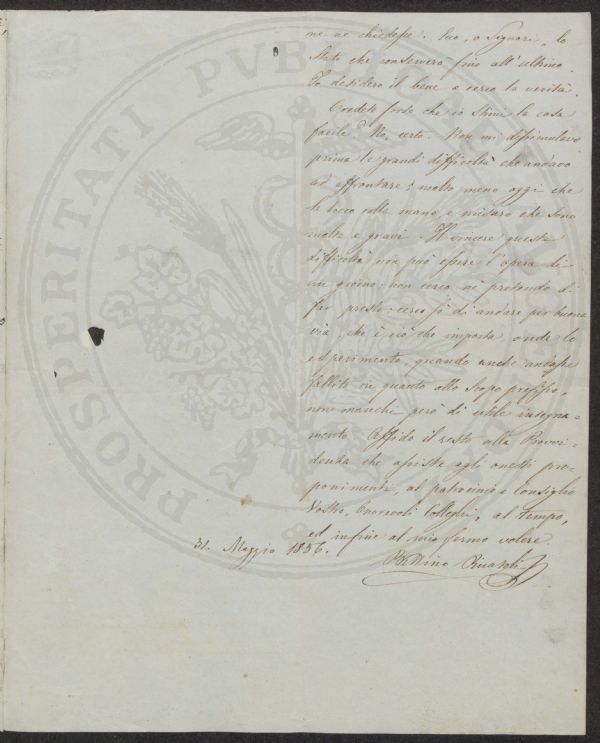 ne ne chiedesse. Ecco, o Signori, lo
Stato che conserverò fino all'ultimo.
Io desidero il bene e cerco la verità.
Credete forse che io stimi la cosa
facile? No, certo. Non mi dissimulavo
prima le grandi difficoltà che andavo
ad affrontare; molto meno oggi che
le tocco colla mano, e misuro che sono
molte e gravi. Il vincere queste
difficoltà non può essere l'opera di
un giorno: non cerco nè pretendo di
far presto; cerco sì di andare per buona
via, che è ciò che importa onde lo
esperimento, quando anche andasse
fallito in quanto allo scopo prefisso,
non manchi però di utile insegna-
mento. Affido il resto alla Provvi-
denza che assiste agli onesti pro-
ponimenti, al patrocinio e consiglio
Vostro, Onorevoli Colleghi, al tempo,
ed infine al mio fermo volere.
31. Maggio 1856.
Bettino Ricasoli
PROSPERITATI PVBLICAE